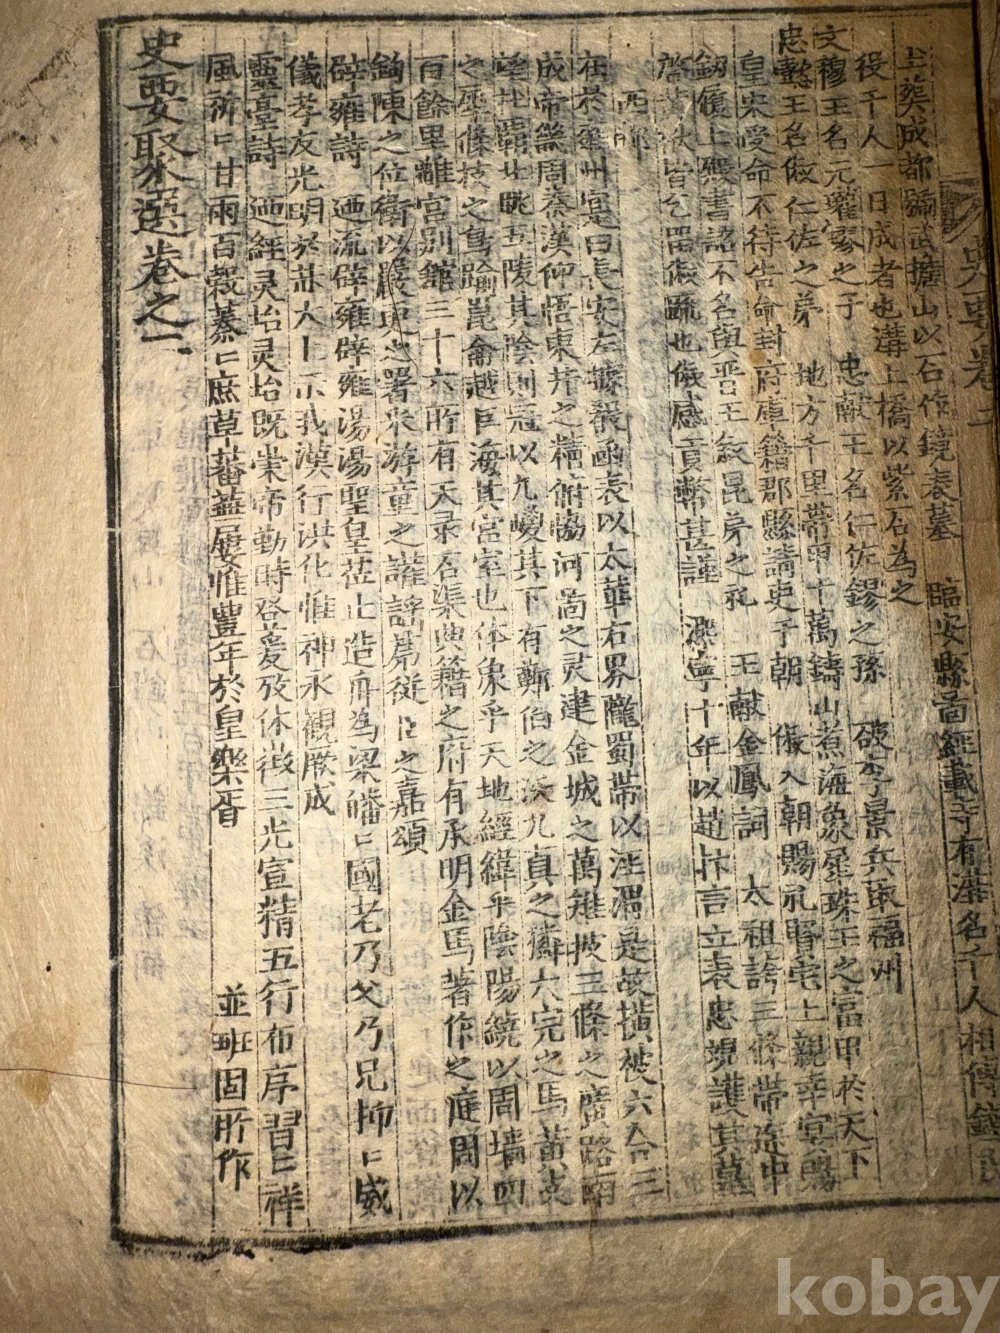 史要卷一
上葬成都號武擔山以石作鏡表墓 臨安縣啚經載寺有潘名千人相傳鏐
役千人一日成者也溝上橋以紫石為之
文穆王名元瓘鏐之子 忠獻王名仁佐鏐之孫 破李景兵取福州
忠懿王名俶仁佐之弟 地方千里帶甲十萬鑄山煮海象犀珠玉之富甲於天下
皇宋受命不待告命封府庫籍郡縣請吏于朝 俶入朝賜礼賢宅上親幸宴賜
釰履上殿書詔不名與晋王叙昆弟之礼 王献金鳳詞 太祖誇三條帶
皆乞畱俶 俶感貢幣甚謹 凞寧十年以趙抃言立表忠觀護其墓
西都
在於雍州寔曰長安左據殽函表以太華右界隴蜀帶以涇渭是故横被六合三
成帝畿周秦漢仰悟東井之精俯協河啚之灵建金城之萬雉披三條之廣路
北眺五陵其陰則冠以九嵕其下有鄭白之沃九真之麟大宛之馬黄支
之犀條枝之鳥踰崑侖越巨海其宮室也体象乎天地經緯乎陰陽繞以周墻四
百餘里離宮别舘三十六所有天录石渠典籍之府有承明金馬著作之庭周以
鉤陳之位衛以嚴更之署采游童之讙謠苐從臣之嘉頌
辟雍詩 迺流辟雍辟雍湯湯聖皇莅止造舟為梁皤〻國老乃父乃兄抑〻威
儀孝友光明於赫太上示我漢行洪化惟神永觀厥成
靈臺詩 迺經灵坮灵坮既崇帝勤時登爰攷休徵三光宣精五行布序習〻祥
風祈〻甘雨百穀蓁〻庶草蕃蕪屢惟豊年於皇樂胥 並班固所作
史要聚選卷之一
kobay